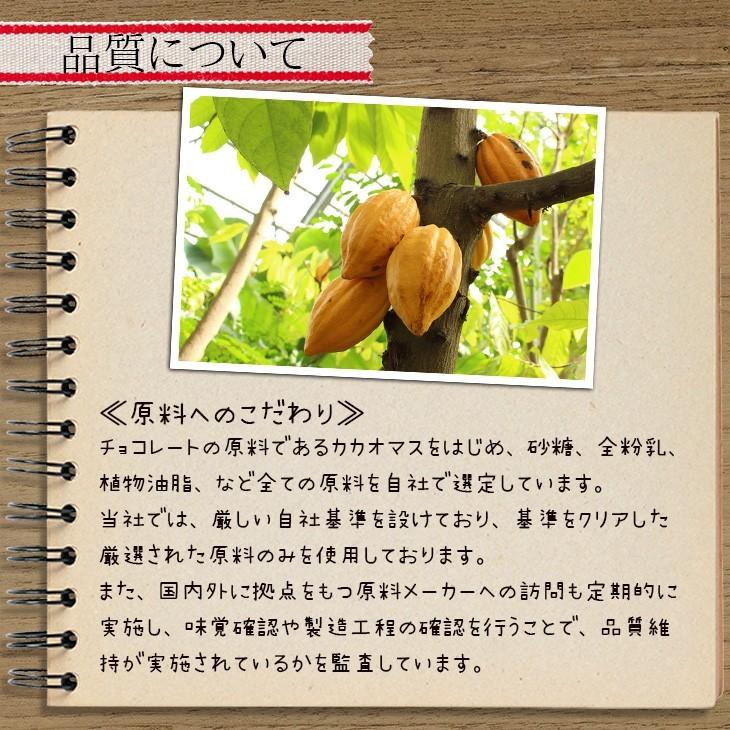 品質について
≪原料へのこだわり≫
チョコレートの原料であるカカオマスをはじめ、砂糖、全粉乳、
植物油脂、など全ての原料を自社で選定しています。
当社では、厳しい自社基準を設けており、基準をクリアした
厳選された原料のみを使用しております。
また、国内外に拠点をもつ原料メーカーへの訪問も定期的に
実施し、味覚確認や製造工程の確認を行うことで、品質維
持が実施されているかを監査しています。